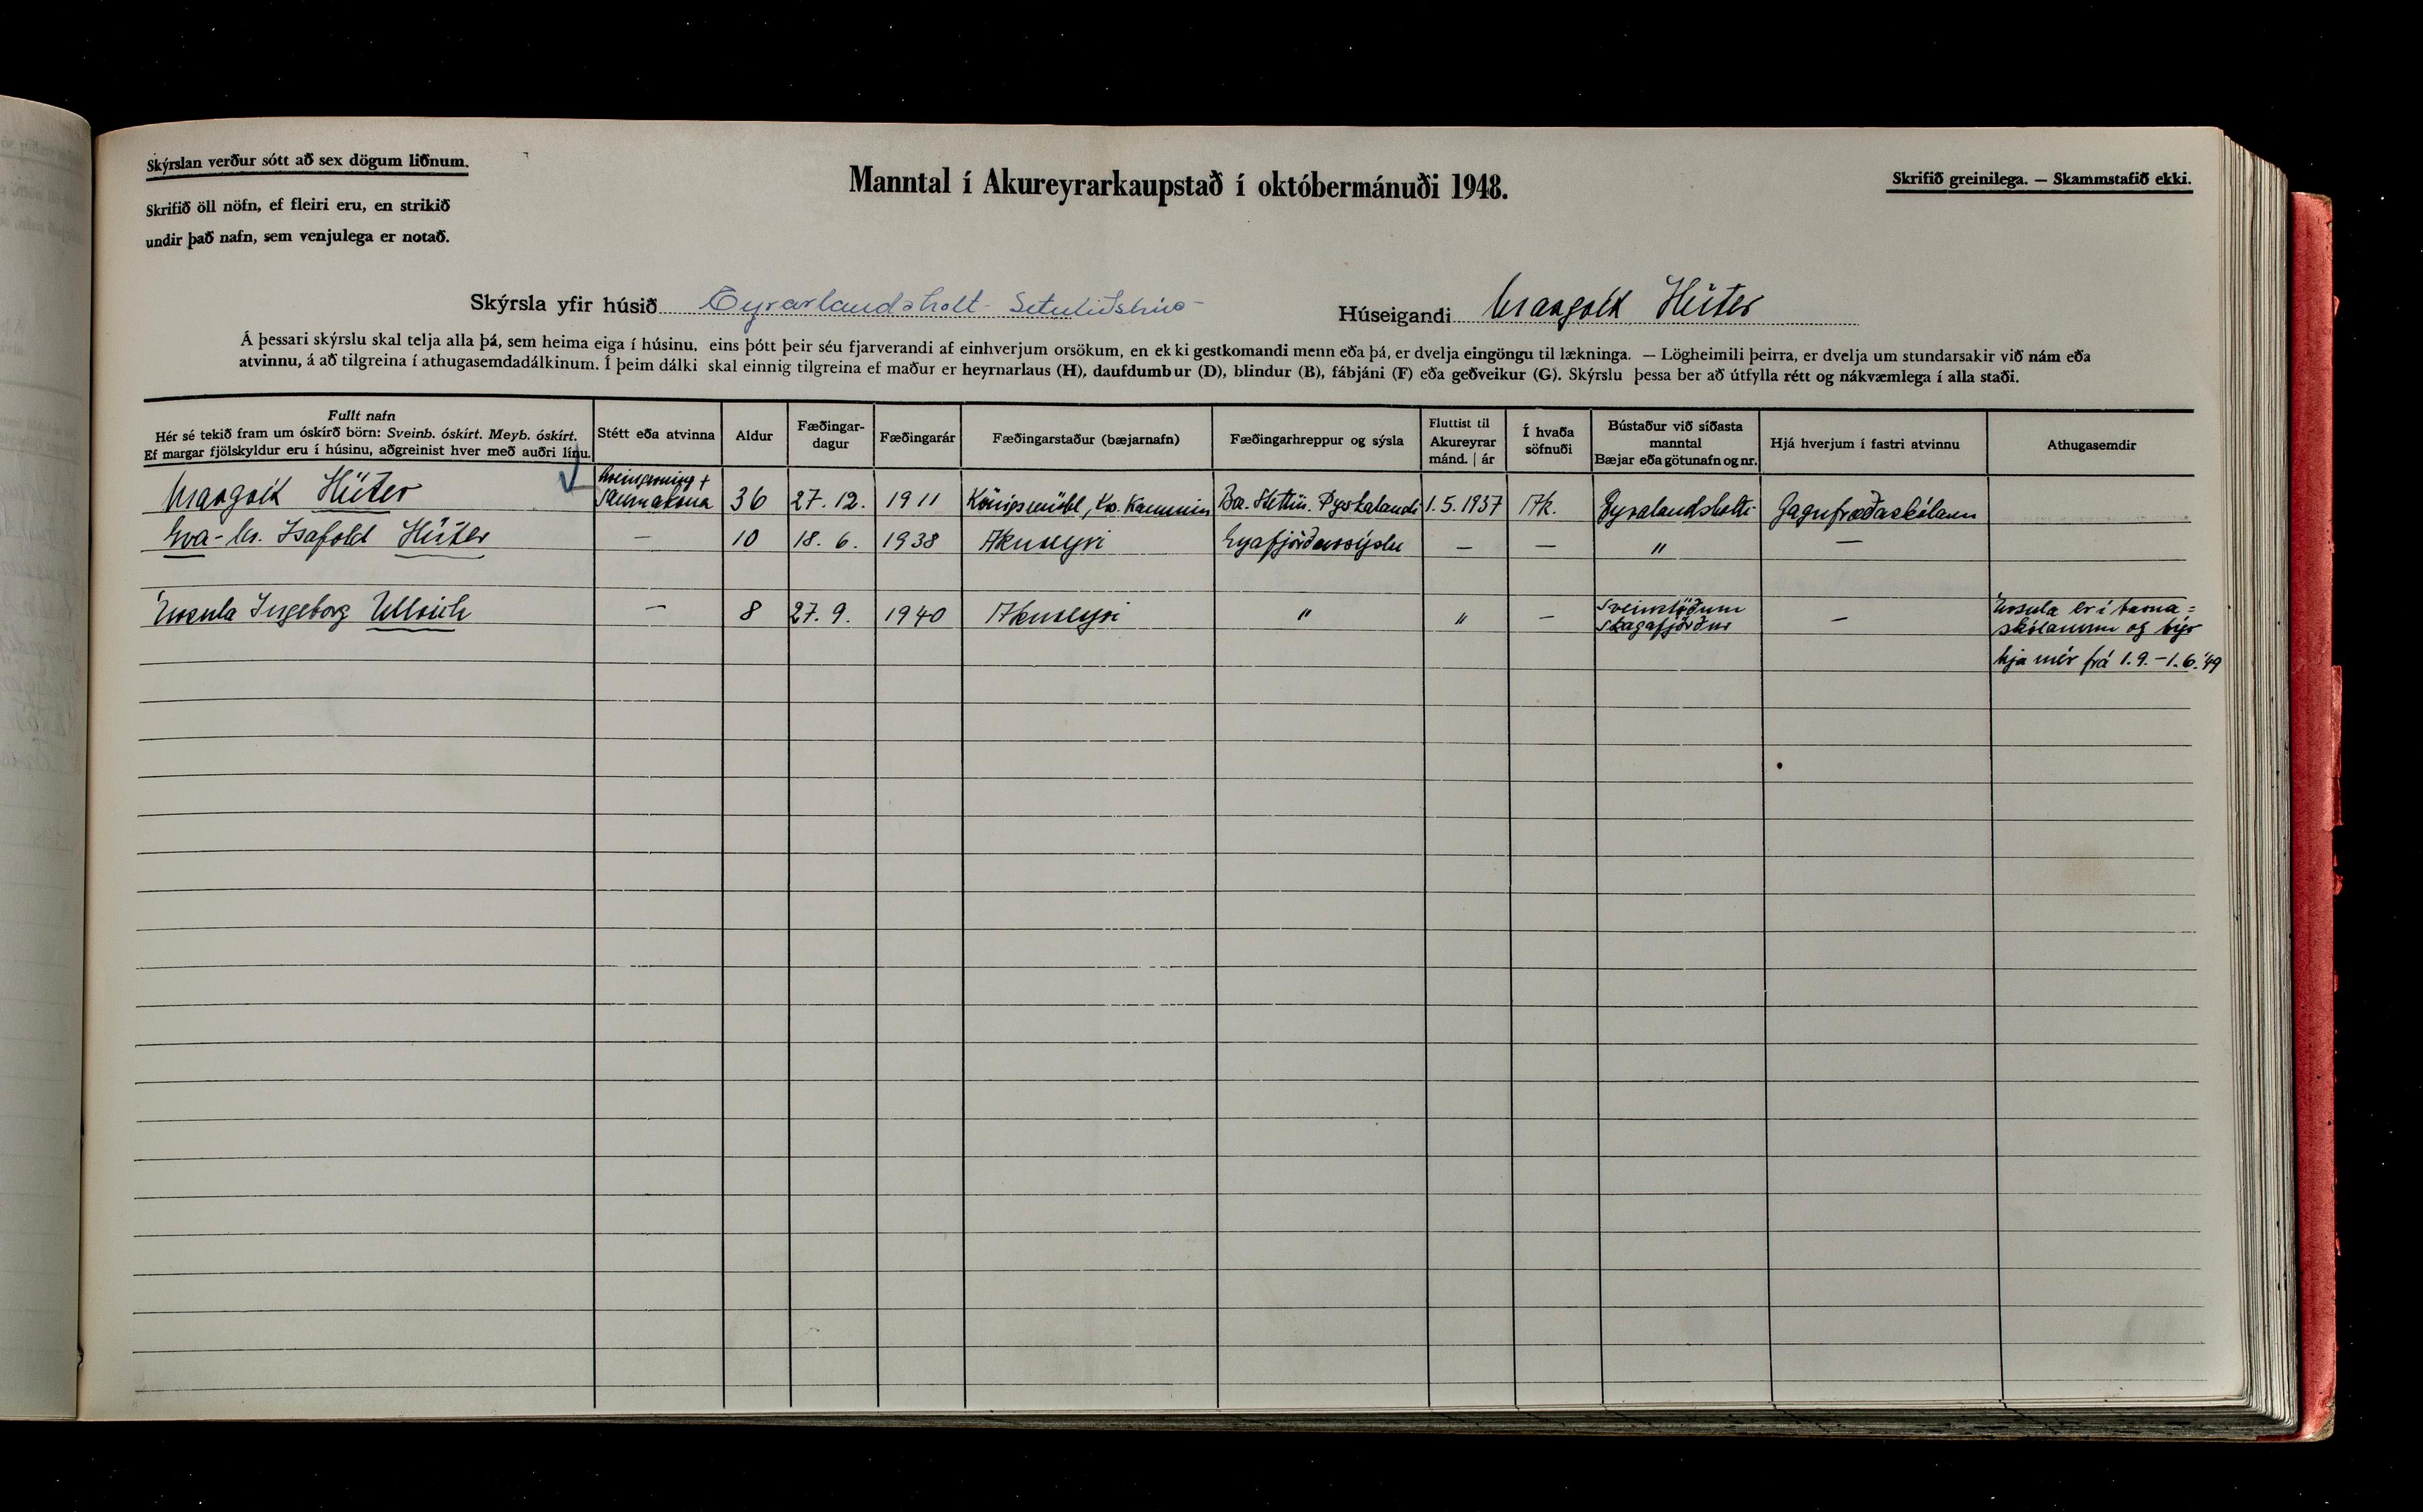 Skýrslan verður sótt að sex dögum liðnum.
Skrifið öll nöfn, ef fleiri eru, en strikið
undir það nafn, sem venjulega er notað.
Manntal í Akureyrarkaupstað í októbermánuði 1948.
Skrifið greinilega. — Skammstafið ekki.
Skýrsla yfir húsið Eyrarlandsholt - Setuliðshús
Húseigandi Margrit Hüter
Á þessari skýrslu skal telja alla þá, sem heima eiga í húsinu, eins þótt þeir séu fjarverandi af einhverjum orsökum, en ekki gestkomandi menn eða þá, er dvelja eingöngu til lækninga. — Lögheimili þeirra, er dvelja um stundarsakir við nám eða
atvinnu, á að tilgreina í athugasemdadálkinum. Í þeim dálki skal einnig tilgreina ef maður er heyrnarlaus (H), daufdumbur (D), blindur (B), fábjáni (F) eða geðveikur (G). Skýrslu þessa ber að útfylla rétt og nákvæmlega í alla staði.
Fullt nafn
Hér sé tekið fram um óskírð börn: Sveinb. óskírt. Meyb. óskírt.
Ef margar fjölskyldur eru í húsinu, aðgreinist hver með auðri línu.
Stétt eða atvinna
Aldur
Fæðingar-
dagur
Fæðingarár
Fæðingarstaður (bæjarnafn)
Fæðingarhreppur og sýsla
Fluttist til
Akureyrar
mánd. | ár
Í hvaða
söfnuði
Bústaður við síðasta
manntal
Bæjar eða götunafn og nr.
Hjá hverjum í fastri atvinnu
Athugasemdir
Margrit Hüter
hreingerning +
saumakona 36 27. 12. 1911 Königsmühl, Kr. Kammin Bz. Stettin. Þyskalandi 1.5.1937 Ak. Eyralandsholti Gagnfræðaskólann
Eva- Isafold Hüter — 10 18. 6. 1938 Akureyri Eyafjörðarsýslu — — " —
Ursula Ingeborg Ullrich — 8 27. 9. 1940 Akureyri " " —
Skagafjörður —
Ursula er í barna=
skólanum og býr
hja mér frá 1.9.-1.6.'49